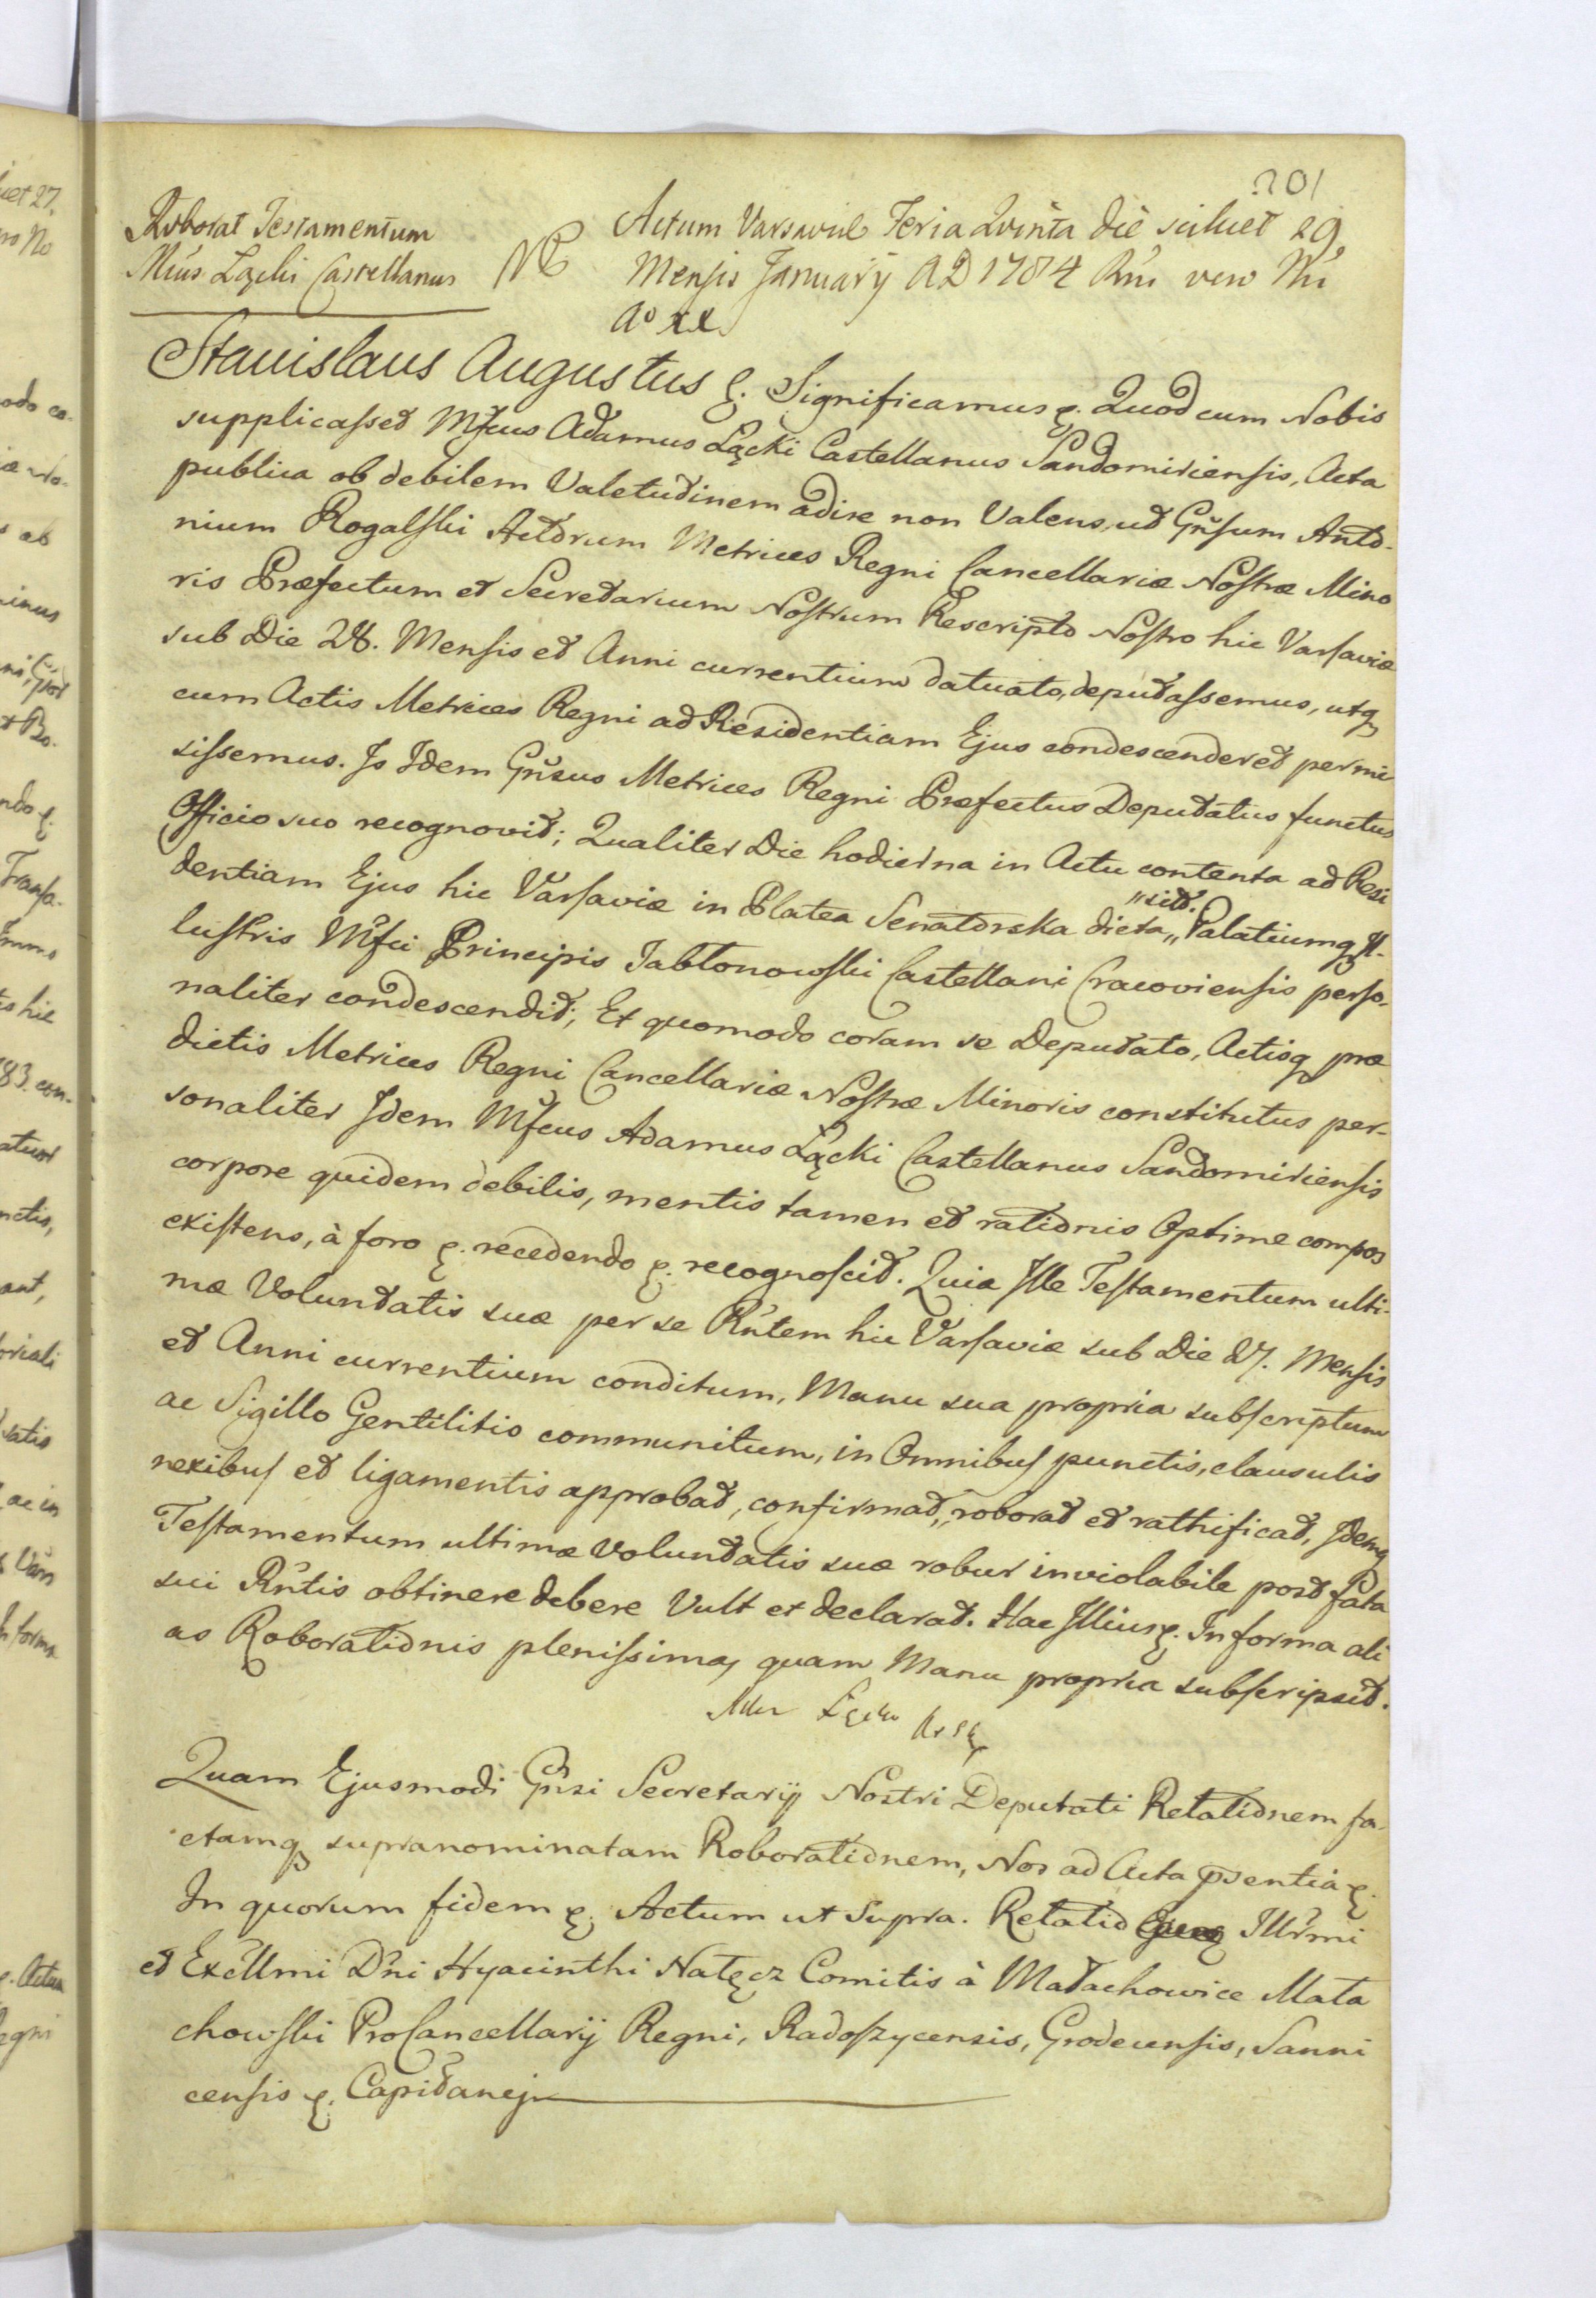 201
Roborat Testamentum
Mfcus Łącki Castellanus
Actum Varsaviæ Feria Quinta die scilicet 29
Mensis Januarÿ AD 1784 Rni vero Nri
Ao xx
Stanislaus Augustus &. Significamus &. Quod cum Nobis
supplicasset Mfcus Adamus Łącki Castellanus Sandomiriensis, Acta
publica ob debilem Valetudinem adire non Valens, ut Gnsum Anto-
nium Rogalski Actorum Metrices Regni Cancellariæ Nostræ Mino
ris Præfectum et Secretarium Nostrum Rescripto Nostro hic Varsaviæ
sub Die 28. Mensis et Anni currentium datuato, deputassemus, utq
cum Actis Metrices Regni ad Residentiam Ejus condescenderet permi
sissemus. Is Idem Gnsus Metrices Regni Præfectus Deputatus functus
Officio suo recognovit; Qualiter Die hodierna in Actu contenta ad Resi
dentiam Ejus hic Varsaviæ in Platea Senatorska dicta „ Palatiumq Il-
„sit.
lustris Mfci Principis Jabłonowski Castellani Cracoviensis perso-
naliter condescendit; Et quomodo coram se Deputato, Actisq præ
dictis Metrices Regni Cancellariæ Nostræ Minoris constitutus per-
sonaliter Idem Mfcus Adamus Łącki Castellanus Sandomiriensis
corpore quidem debilis, mentis tamen et rationis Optime compos
existens, à foro &. recedendo &. recognoscit. Quia Ille Testamentum ulti-
mæ Voluntatis suæ per se Rntem hic Varsaviæ sub Die 27. Mensis
et Anni currentium conditum, Manu sua propria subscriptum
ac Sigillo Gentilitio communitum, in Omnibus punctis, clausulis
nexibus et ligamentis approbat, confirmat, roborat et rathificat, Idemq
Testamentum ultimæ Voluntatis suæ robur inviolabile post fata
sui Rntis obtinere debere Vult et declarat. Hac Illius &. In forma ali
as Roborationis plenissima, quam Manu propria subscripsit.
Quam Ejusmodi Gnsi Secretarij Nostri Deputati Relationem fa-
ctamq supranominatam Roborationem, Nos ad Acta psentia &.
In quorum fidem &. Actum ut supra. Relatio Illrmi
et Excllmi Dni Hyacinthi Nałęcz Comitis à Małachowice Mała
chowski ProCancellarij Regni, Radoszycensis, Grodecensis, Sanni
censis &. Capitanej